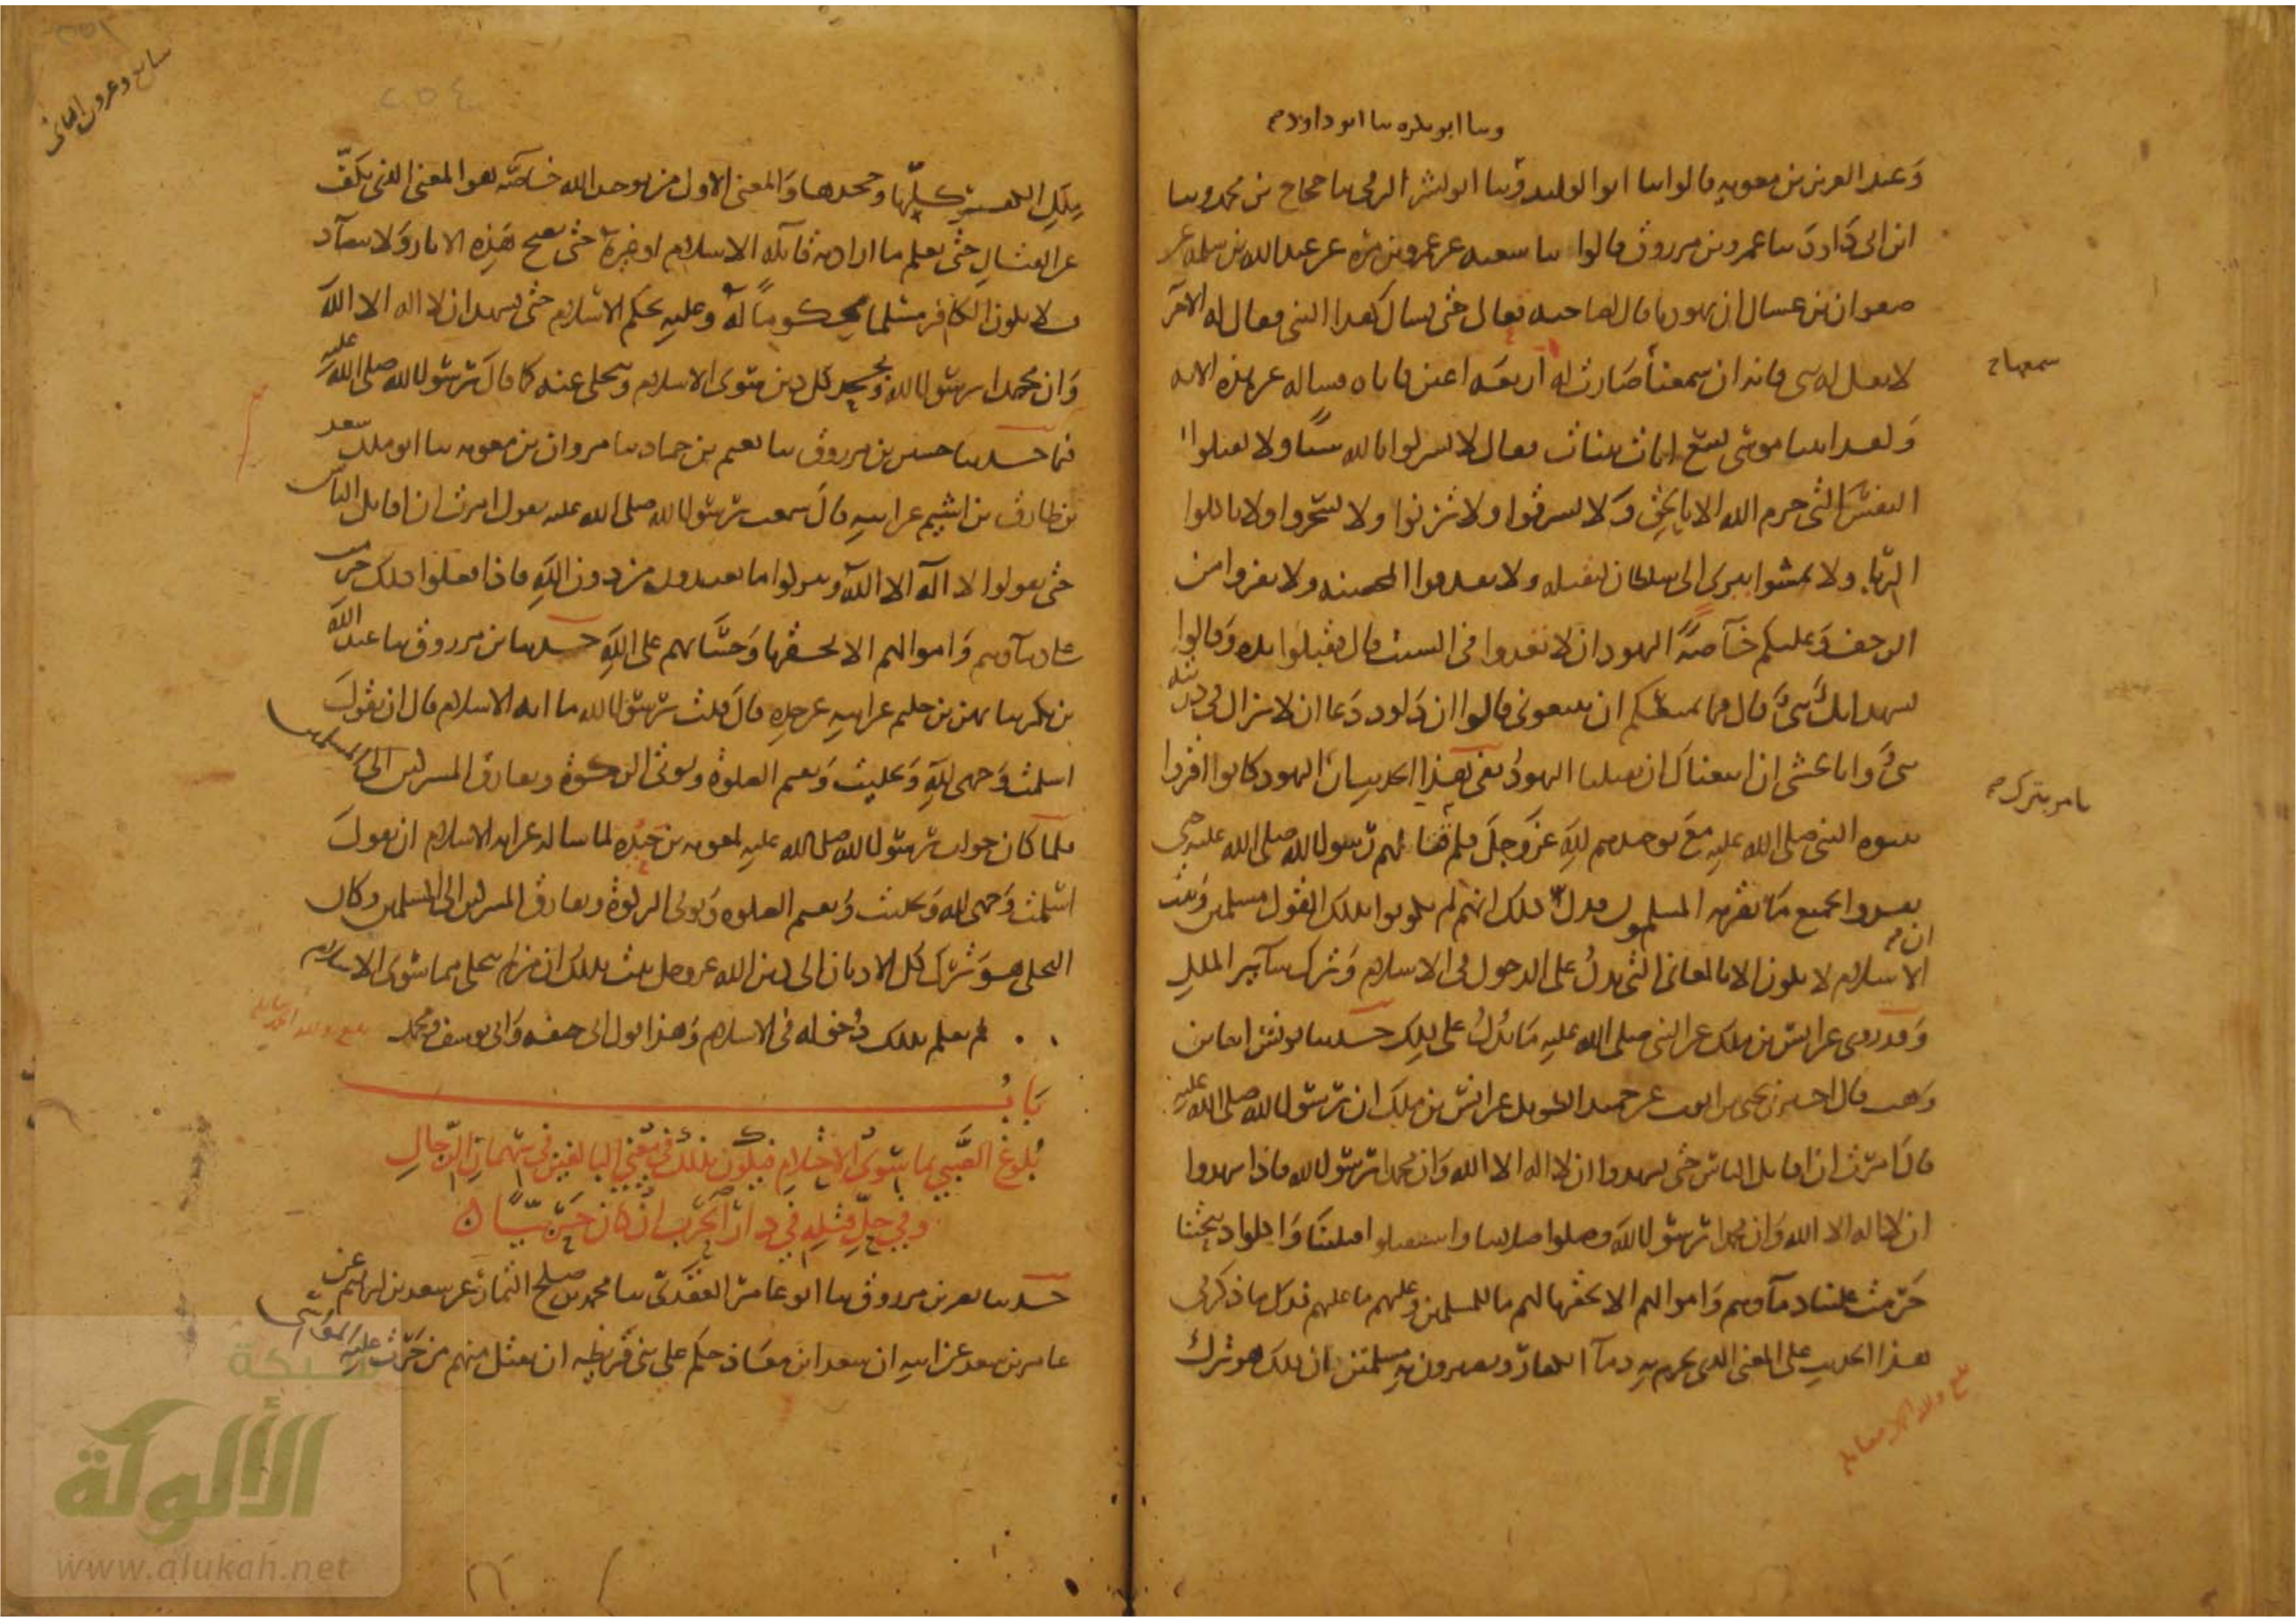 وثنا ابو بكرة ثنا ابو داود ح
وعبد العزيز بن معوية قالوا ثنا ابو الوليد وثنا ابو بشر الرقي ثنا حجاج بن محمد وثنا
ابن ابي داود ثنا عمرو بن مرزوق قالوا ثنا شعبه عن عمرو بن مره عن عبد الله بن سلمه عن
صفوان بن عسال ان يهوديا قال لصاحبه تعال حتى نسال هذا النبي فقال له الاخر
لا تقل له نبي فانه ان سمعها صارت له اربعه اعين فاتاه فساله عن هذه الايه
سمعها ح
ولقد اتينا موسى تسع ايات بينات فقال لا تشركوا بالله شيئا ولا تقتلوا
النفس التي حرم الله الا بالحق ولا تسرقوا ولا تزنوا ولا تسحروا ولا تاكلوا
الربا ولا تمشوا ببريء الى سلطان ليقتله ولا تقذفوا المحصنه ولا تفروا من
الزحف وعليكم خاصة اليهود ان لا تعدوا في السبت قال فقبلوا يده وقالوا
نشهد انك نبي قال فما يمنعكم ان تتبعوني قالوا ان داود دعا ان لا يزال في ذريته
نبي وانا نخشى ان اتبعناك ان تقتلنا اليهود ففي هذا الحديث ان اليهود كانوا اقروا
بنبوه النبي صلى الله عليه مع توحيدهم لله عز وجل فلم يقاتلهم رسول الله صلى الله عليه حتى
يقروا بجميع ما يقر به المسلمون فدل ذلك انهم لم يكونوا بذلك القول مسلمين وثبت
ان
الاسلام لا يكون الا بالمعاني التي تدل على الدخول في الاسلام وترك سائر الملل
وقد روي عن انس بن ملك عن النبي صلى الله عليه ما يدل على ذلك حدثنا يونس انا ابن
وهب قال اخبرني يحيى بن ايوب عن حميد الطويل عن انس بن ملك ان رسول الله صلى الله عليه
قال امرت ان اقاتل الناس حتى يشهدوا ان لا اله الا الله وان محمدا رسول الله فاذا شهدوا
ان لا اله الا الله وان محمدا رسول الله وصلوا صلاتنا واستقبلوا قبلتنا واكلوا ذبيحتنا
حرمت علينا دماوهم واموالهم الا بحقها لهم ما للمسلمين وعليهم ما عليهم فدل ما ذكر في
هذا الحديث على المعنى الذي يحرم به دماء الكفار ويصيرون به مسلمين بان ذلك هو ترك
ملل الكفر كلها وجحدها والمعنى الاول من توحيد الله خاصة هو المعنى الذي نكف
عن القتال حتى نعلم ما اراد به قائله الاسلام او غيره حتى تصح هذه الاثار ولا تتضاد
فلا يكون الكافر مسلما محكوما له وعليه بحكم الاسلام حتى يشهد ان لا اله الا الله
وان محمدا رسول الله ويجحد كل دين سوى الاسلام ويتخلى عنه كما قال رسول الله صلى الله عليه
فما حدثنا حسين بن مرزوق ثنا نعيم بن حماد ثنا مروان بن معوية ثنا ابو ملك سعد
بن طارق بن اشيم عن ابيه قال سمعت رسول الله صلى الله عليه يقول امرت ان اقاتل الناس
حتى يقولوا لا اله الا الله ويتركوا ما يعبدون من دون الله فاذا فعلوا ذلك حرمت
علي دماوهم واموالهم الا بحقها وحسابهم على الله حدثنا ابن مرزوق ثنا عبد الله
بن بكر ثنا بهز بن حكيم عن ابيه عن جده قال قلت رسول الله ما ايه الاسلام قال ان تقول
اسلمت وجهي لله وتخليت وتقيم الصلوة وتوتي الزكوة وتفارق المشركين الى المسلمين
فلما كان جواب رسول الله صلى الله عليه لمعوية بن حيده لما ساله عن ايه الاسلام ان تقول
اسلمت وجهي لله وتخليت وتقيم الصلوه وتوتي الزكوة وتفارق المشركين الى المسلمين وكان
التخلي هو ترك كل الاديان الى دين الله عز وجل ثبت بذلك ان من لم يتخلى مما سوى الاسلام
لم يعلم بذلك دخوله في الاسلام وهذا قول ابي حنيفه وابي يوسف ومحمد
باب
بلوغ الصبي بما سوى الاحتلام فيكون بذلك في معنى البالغين في سهمان الرجال
وفي حل قتله في دار الحرب ان كان حربيا
حدثنا ابن مرزوق ثنا ابو عامر العقدي ثنا محمد بن صلح التمار عن سعد بن ابرهيم عن
عامر بن سعد عن ابيه ان سعد ابن معاذ حكم على بني قريظه ان يقتل منهم من جرت عليه المواسي
شبكة
الألوكة
www.alukah.net